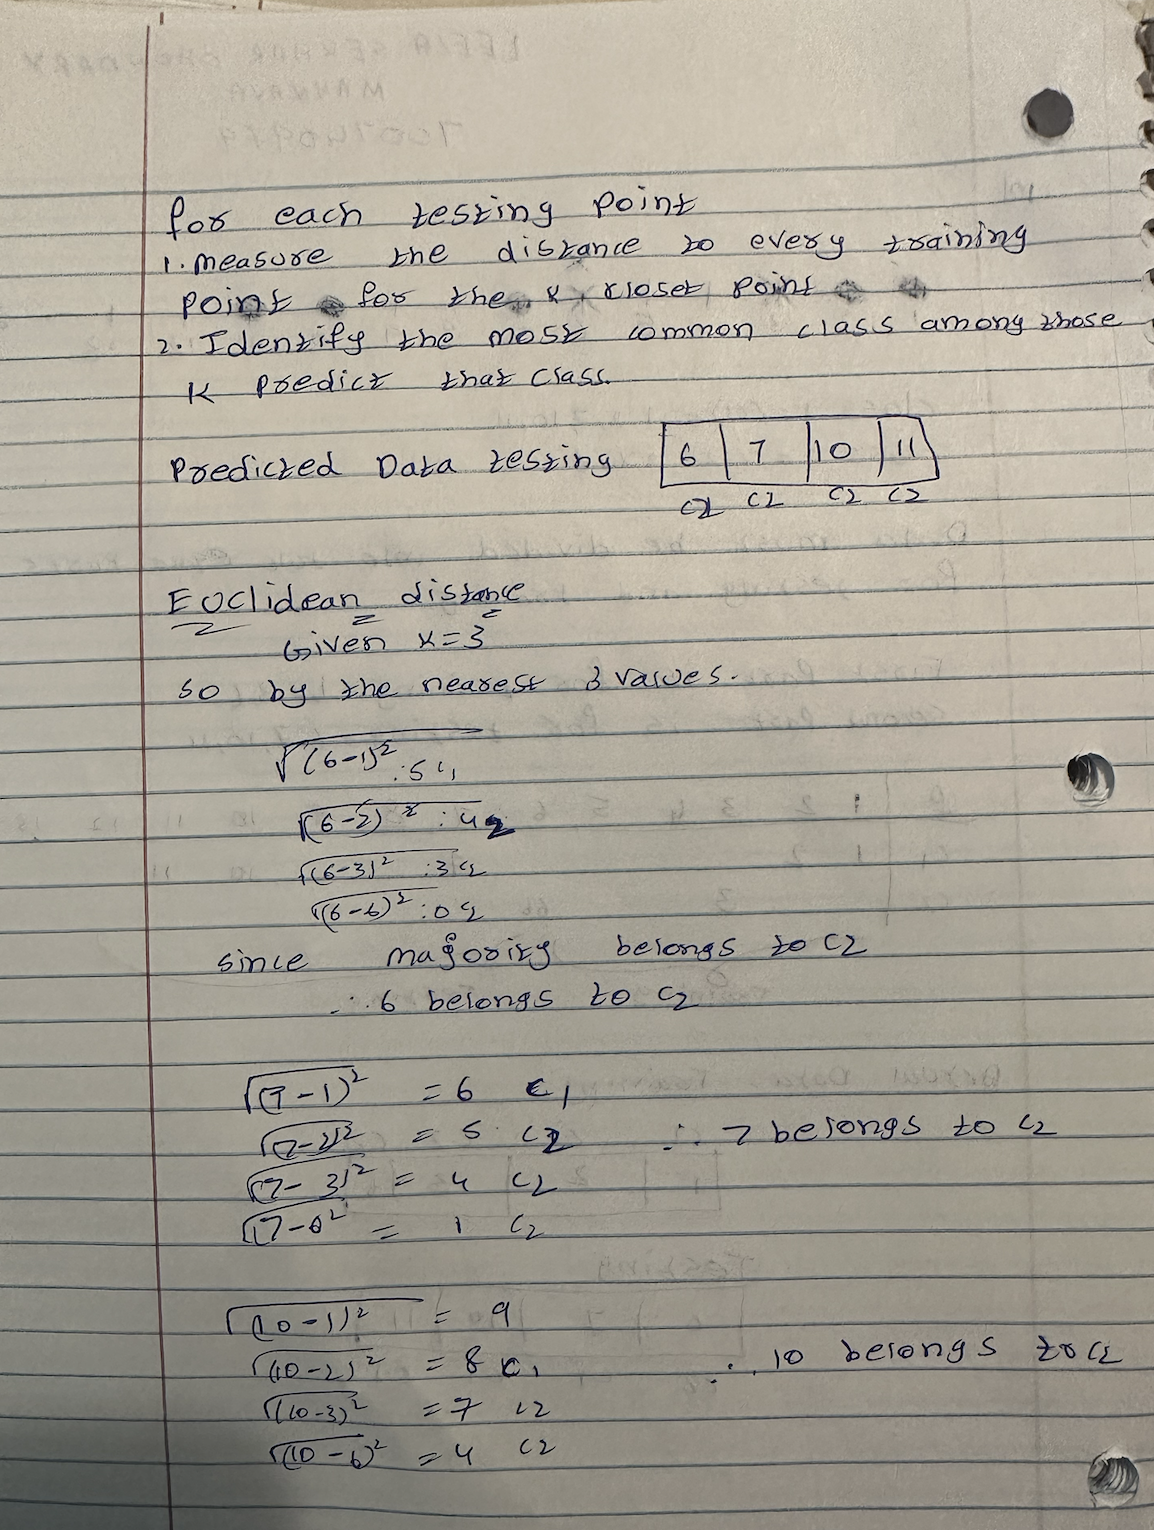 for each testing point
1. measure the distance to every training
point for the K closet point
2. Identify the most common class among those
K predict that class.
Predicted Data testing 6 7 10 11
C2 C2 C2 C2
Euclidean distance
Given K=3
so by the nearest 3 values.
√(6-1)² : 5 C1
√(6-2)² : 4 2
√(6-3)² : 3 C2
√(6-6)² : 0 C2
since majority belongs to C2
∴ 6 belongs to C2
√(7-1)² = 6 C1
√(7-2)² = 5 C2 ∴ 7 belongs to C2
√(7-3)² = 4 C2
√(7-6)² = 1 C2
√(10-1)² = 9
√(10-2)² = 8 C1 ∴ 10 belongs to C2
√(10-3)² = 7 C2
√(10-6)² = 4 C2